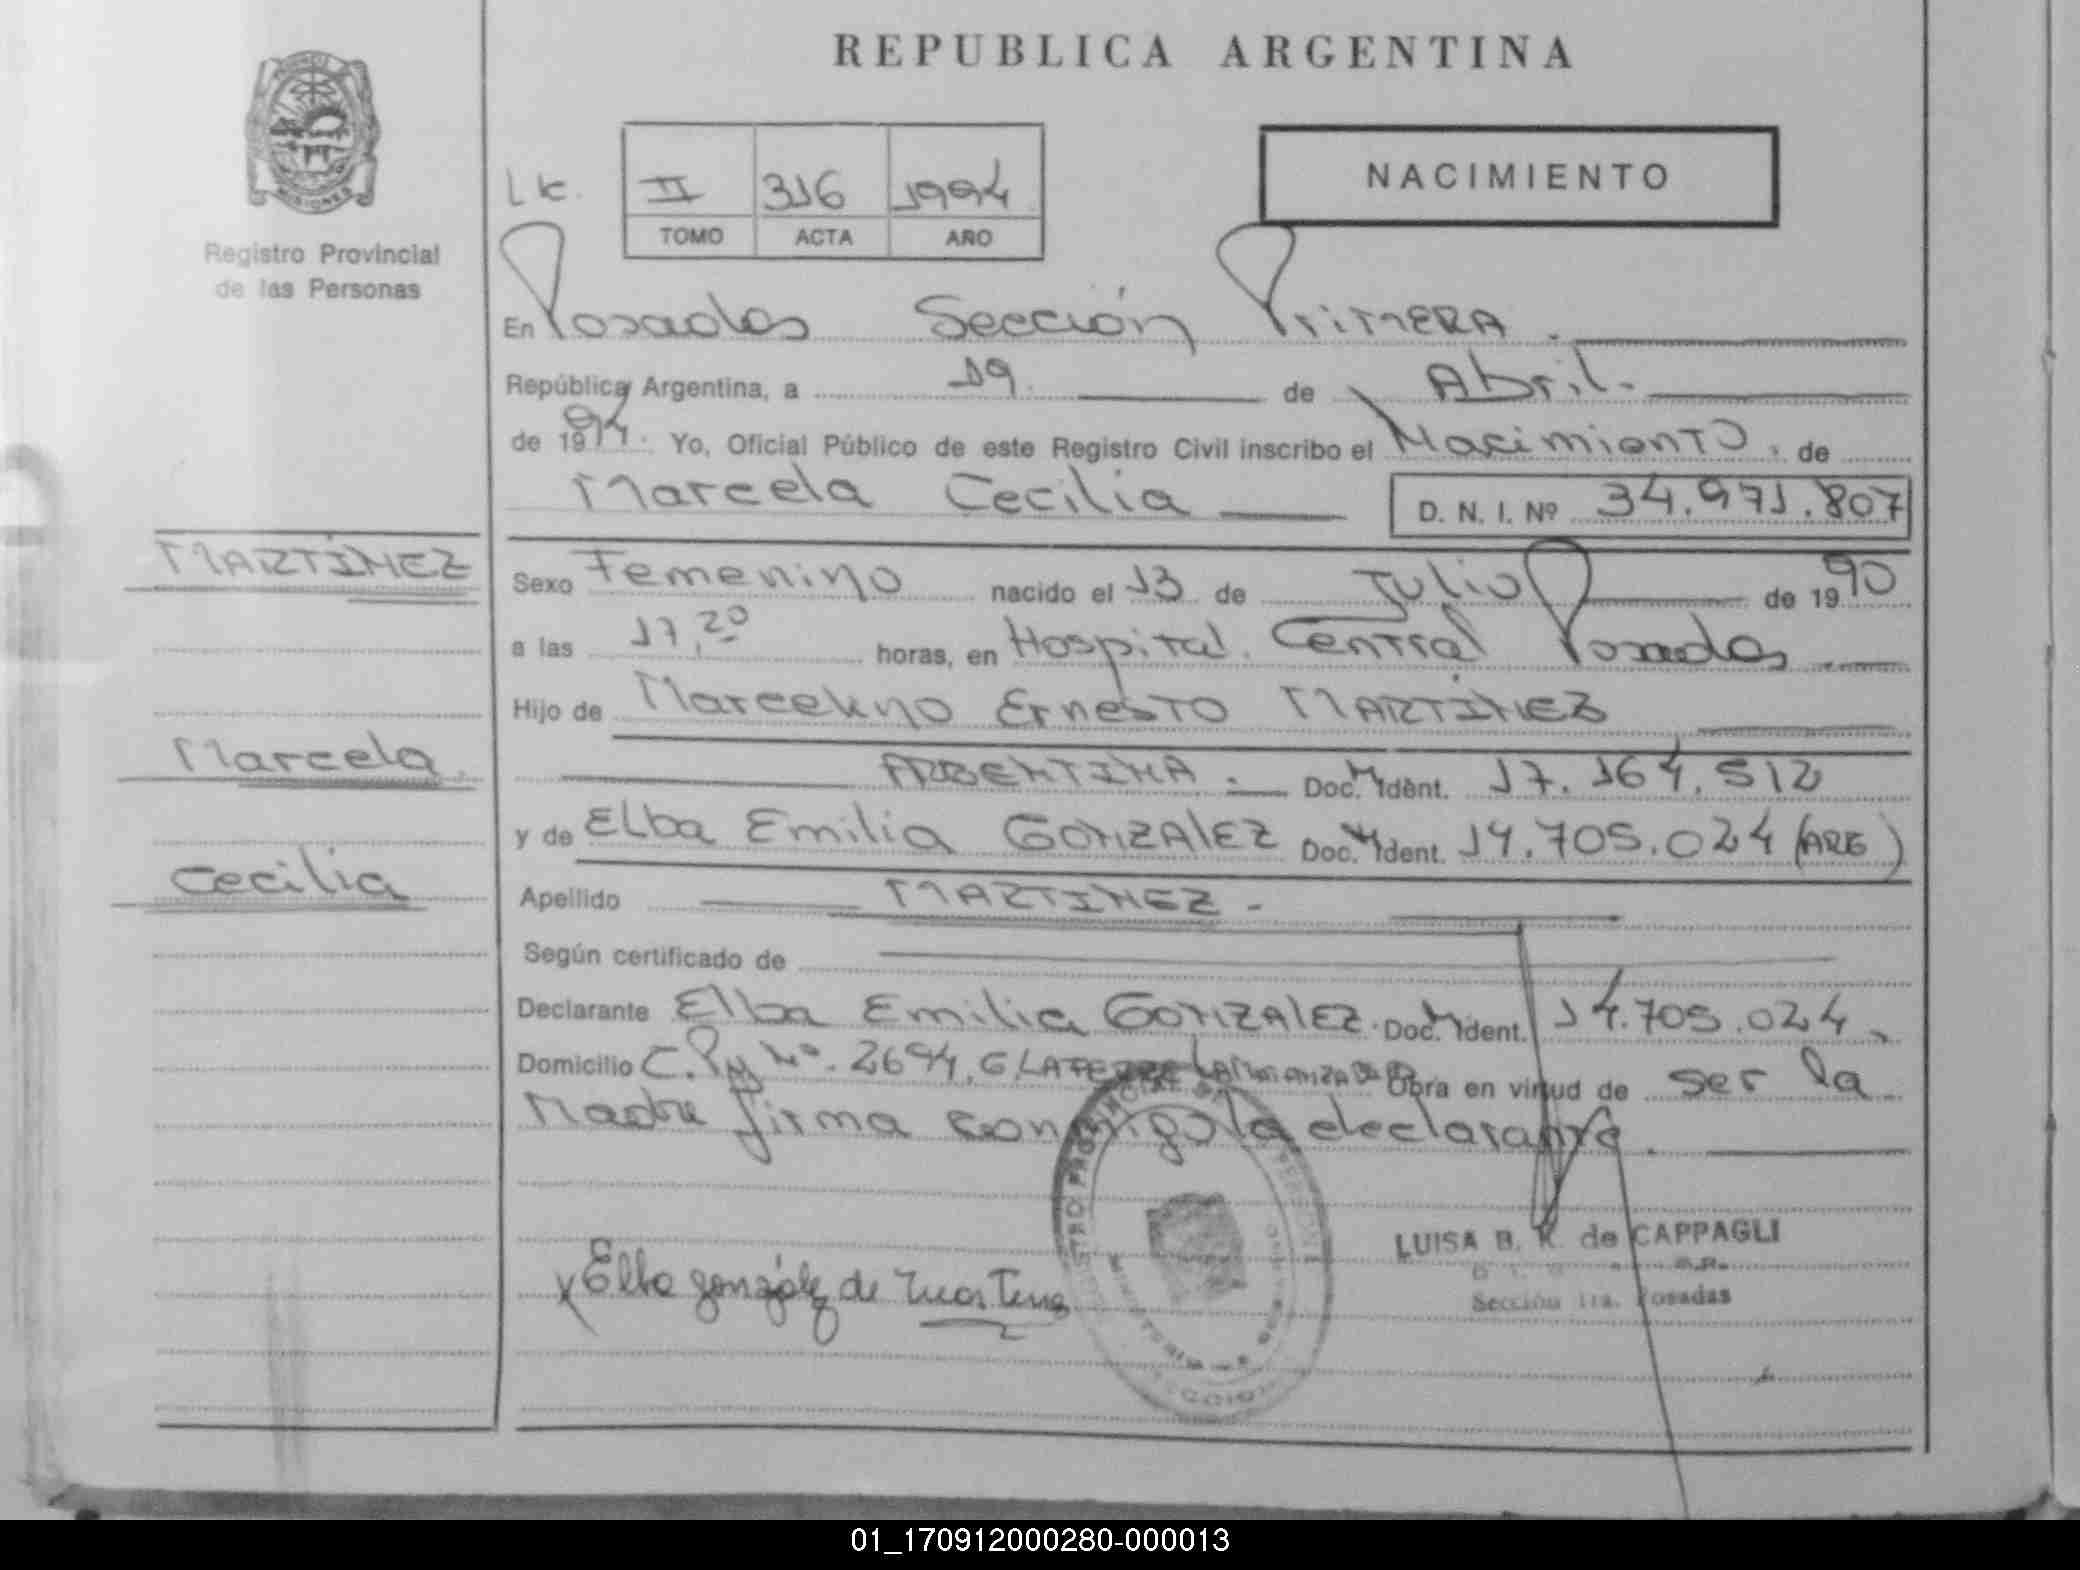 REPUBLICA ARGENTINA
MISIONES
Registro Provincial
de las Personas
II 316 1994
TOMO ACTA AÑO
NACIMIENTO
En Posadas Sección Primera.
República Argentina, a 19. de Abril.
de 1994. Yo, Oficial Público de este Registro Civil inscribo el Nacimiento, de
Marcela Cecilia D. N. I. Nº 34.971.807
MARTÍNEZ
Sexo Femenino nacido el 13 de Julio de 1990
a las 17,20 horas, en Hospital Central Posadas
Hijo de Marcelino Ernesto MARTÍNEZ
Marcela
ARGENTINA. Doc. M Ident. 17.164.512
y de Elba Emilia GONZALEZ Doc. M Ident. 14.705.024 (ARG)
Cecilia
Apellido MARTINEZ -
Según certificado de
Declarante Elba Emilia GONZALEZ. Doc. M Ident. 14.705.024,
Domicilio C. Nº. 2694, G. LAFERRE LA MATANZA Obra en virtud de ser la
Madre firma conmigo la declarante.
LUISA B. K. de CAPPAGLI
Sección 1ra. Posadas
Elba González de Martinez
01_170912000280-000013